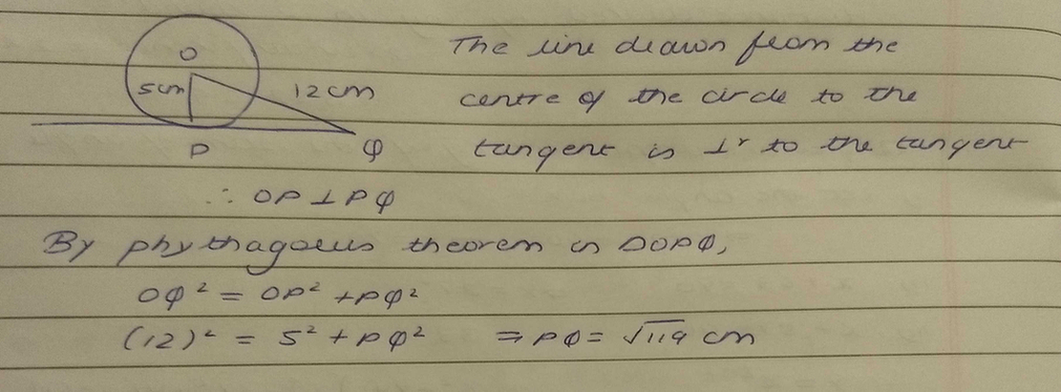 The line drawn from the
centre of the circle to the
tangent is ⊥r to the tangent
O
5cm
12 cm
P
Q
∴ OP ⊥ PQ
By phythagoreus theorem in ΔOPQ,
OQ² = OP² + PQ²
(12)² = 5² + PQ² ⇒ PQ = √119 cm